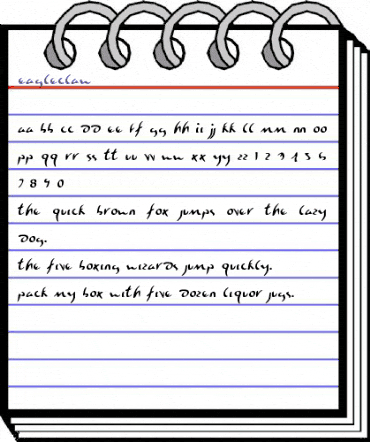 eagleclaw
aa bb cc DD ee ff gg hh ii jj kk ll mm nn oo
pp qq rr ss tt uu vv ww xx yy zz 1 2 3 4 5 6
7 8 9 0
the quick brown fox jumps over the lazy
Dog.
the five boxing wizarDs jump quickly.
pack my box with five Dozen liquor jugs.